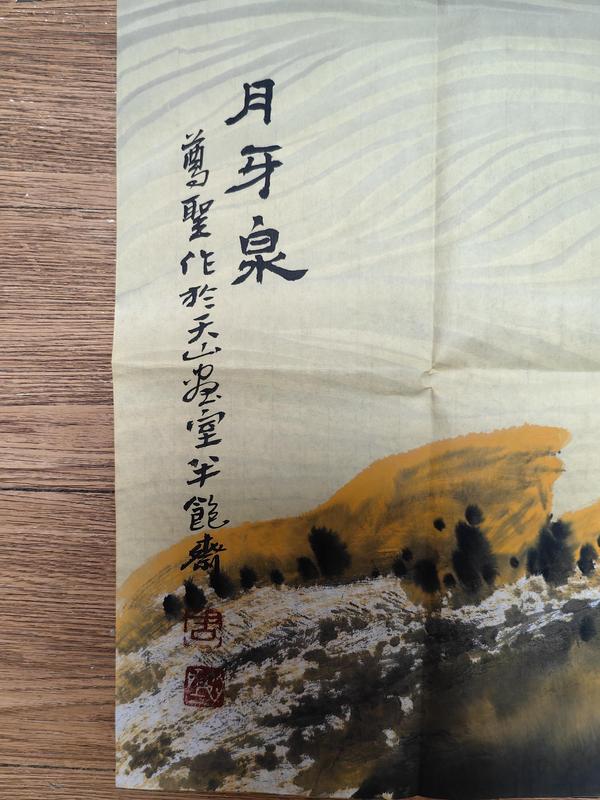 月牙泉
尊聖作於天山画室半飽齋
周